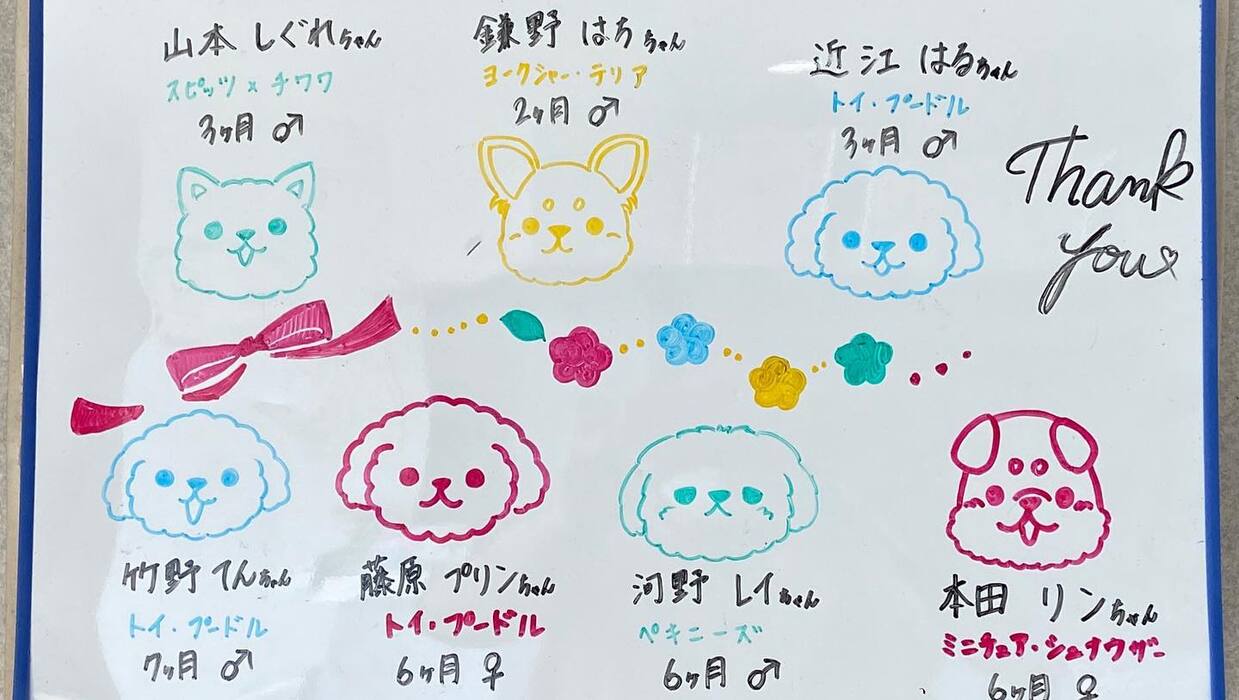 山本 しぐれちゃん
スピッツ × チワワ
3ヶ月 ♂
鎌野 はちちゃん
ヨークシャー・テリア
2ヶ月 ♂
近江 はるちゃん
トイ・プードル
3ヶ月 ♂
Thank
you
竹野 てんちゃん
トイ・プードル
7ヶ月 ♂
藤原 プリンちゃん
トイ・プードル
6ヶ月 ♀
河野 レイちゃん
ペキニーズ
6ヶ月 ♂
本田 リンちゃん
ミニチュア・シュナウザー
6ヶ月 ♀